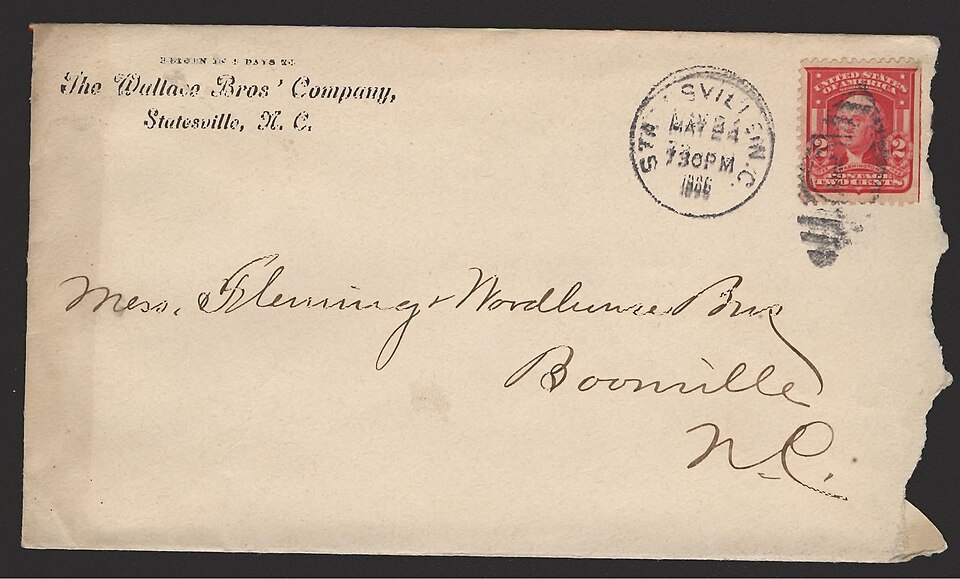 RETURN IN 5 DAYS TO
The Wallace Bros' Company,
Statesville, N. C.
STATESVILLE, N.C.
MAY 24
730PM
UNITED STATES
OF AMERICA
2 2
POSTAGE
TWO CENTS
Mess. Fleming & Woodhouse Bros
Boonville
N.C.